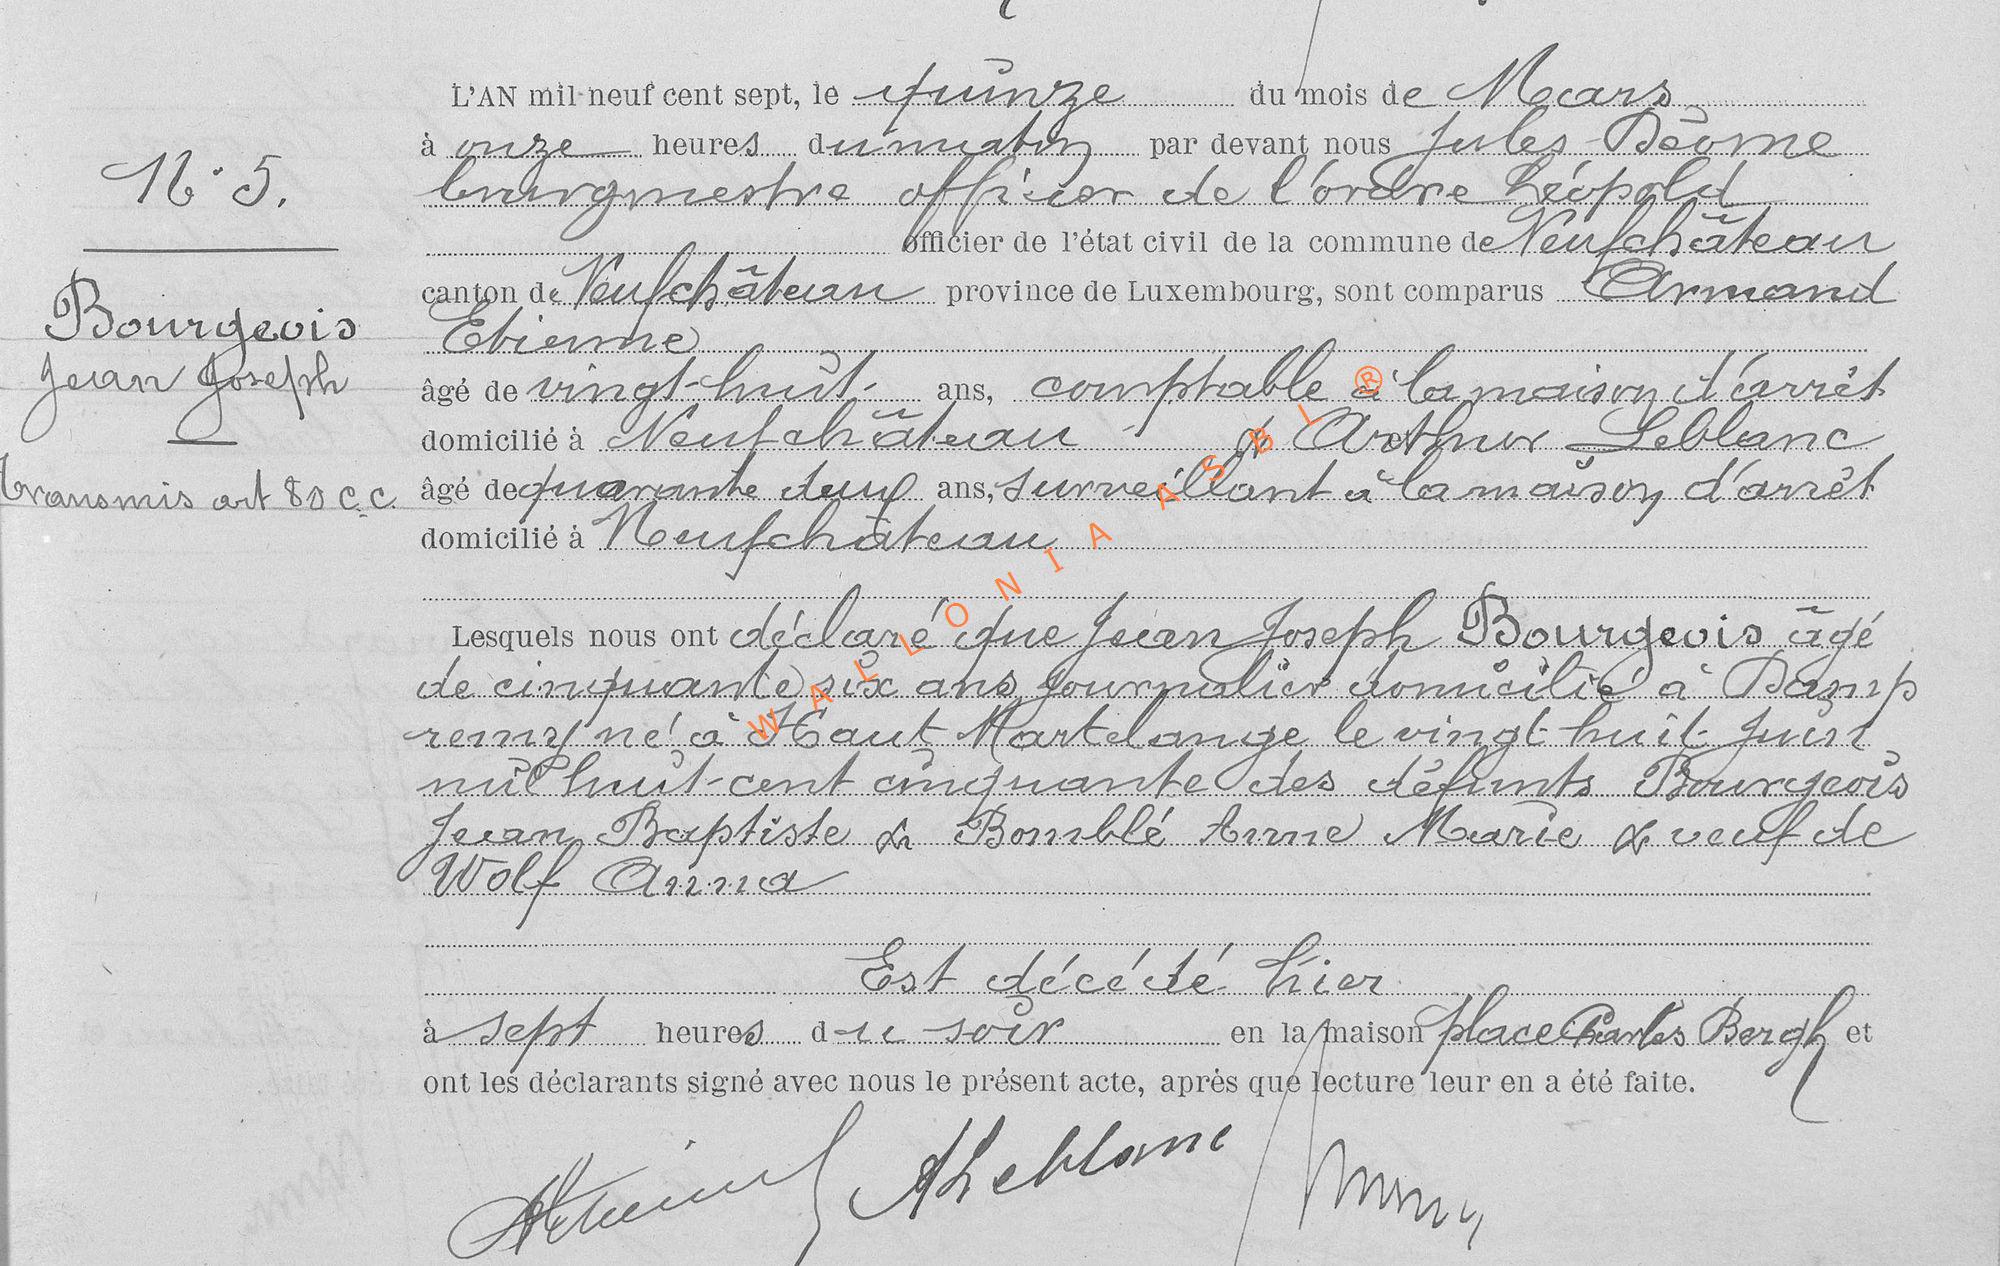 L'AN mil neuf cent sept, le quinze du mois de Mars
à onze heures du matin par devant nous Jules Déome
N° 5.
bourgmestre officier de l'ordre Léopold
officier de l'état civil de la commune de Neufchâteau
canton de Neufchâteau province de Luxembourg, sont comparus Armand
Bourgeois
Etienne
Jean Joseph
âgé de vingt-huit- ans, comptable à la maison d'arrêt
domicilié à Neufchâteau & Arthur Leblanc
Transmis art 80 c.c.
âgé de quarante deux ans, surveillant à la maison d'arrêt
domicilié à Neufchâteau
Lesquels nous ont déclaré que Jean Joseph Bourgeois âgé
de cinquante six ans, journalier domicilié à Damp
remy né à Haut Martelange le vingt-huit Juin
mil huit-cent cinquante des défunts Bourgeois
Jean Baptiste & Bomblé Anne Marie & veuf de
Wolf Anna
Est décédé hier
à sept heures du soir en la maison place Charles Bergh et
ont les déclarants signé avec nous le présent acte, après que lecture leur en a été faite.
ALeblanc
WALLONIA ASBL ®